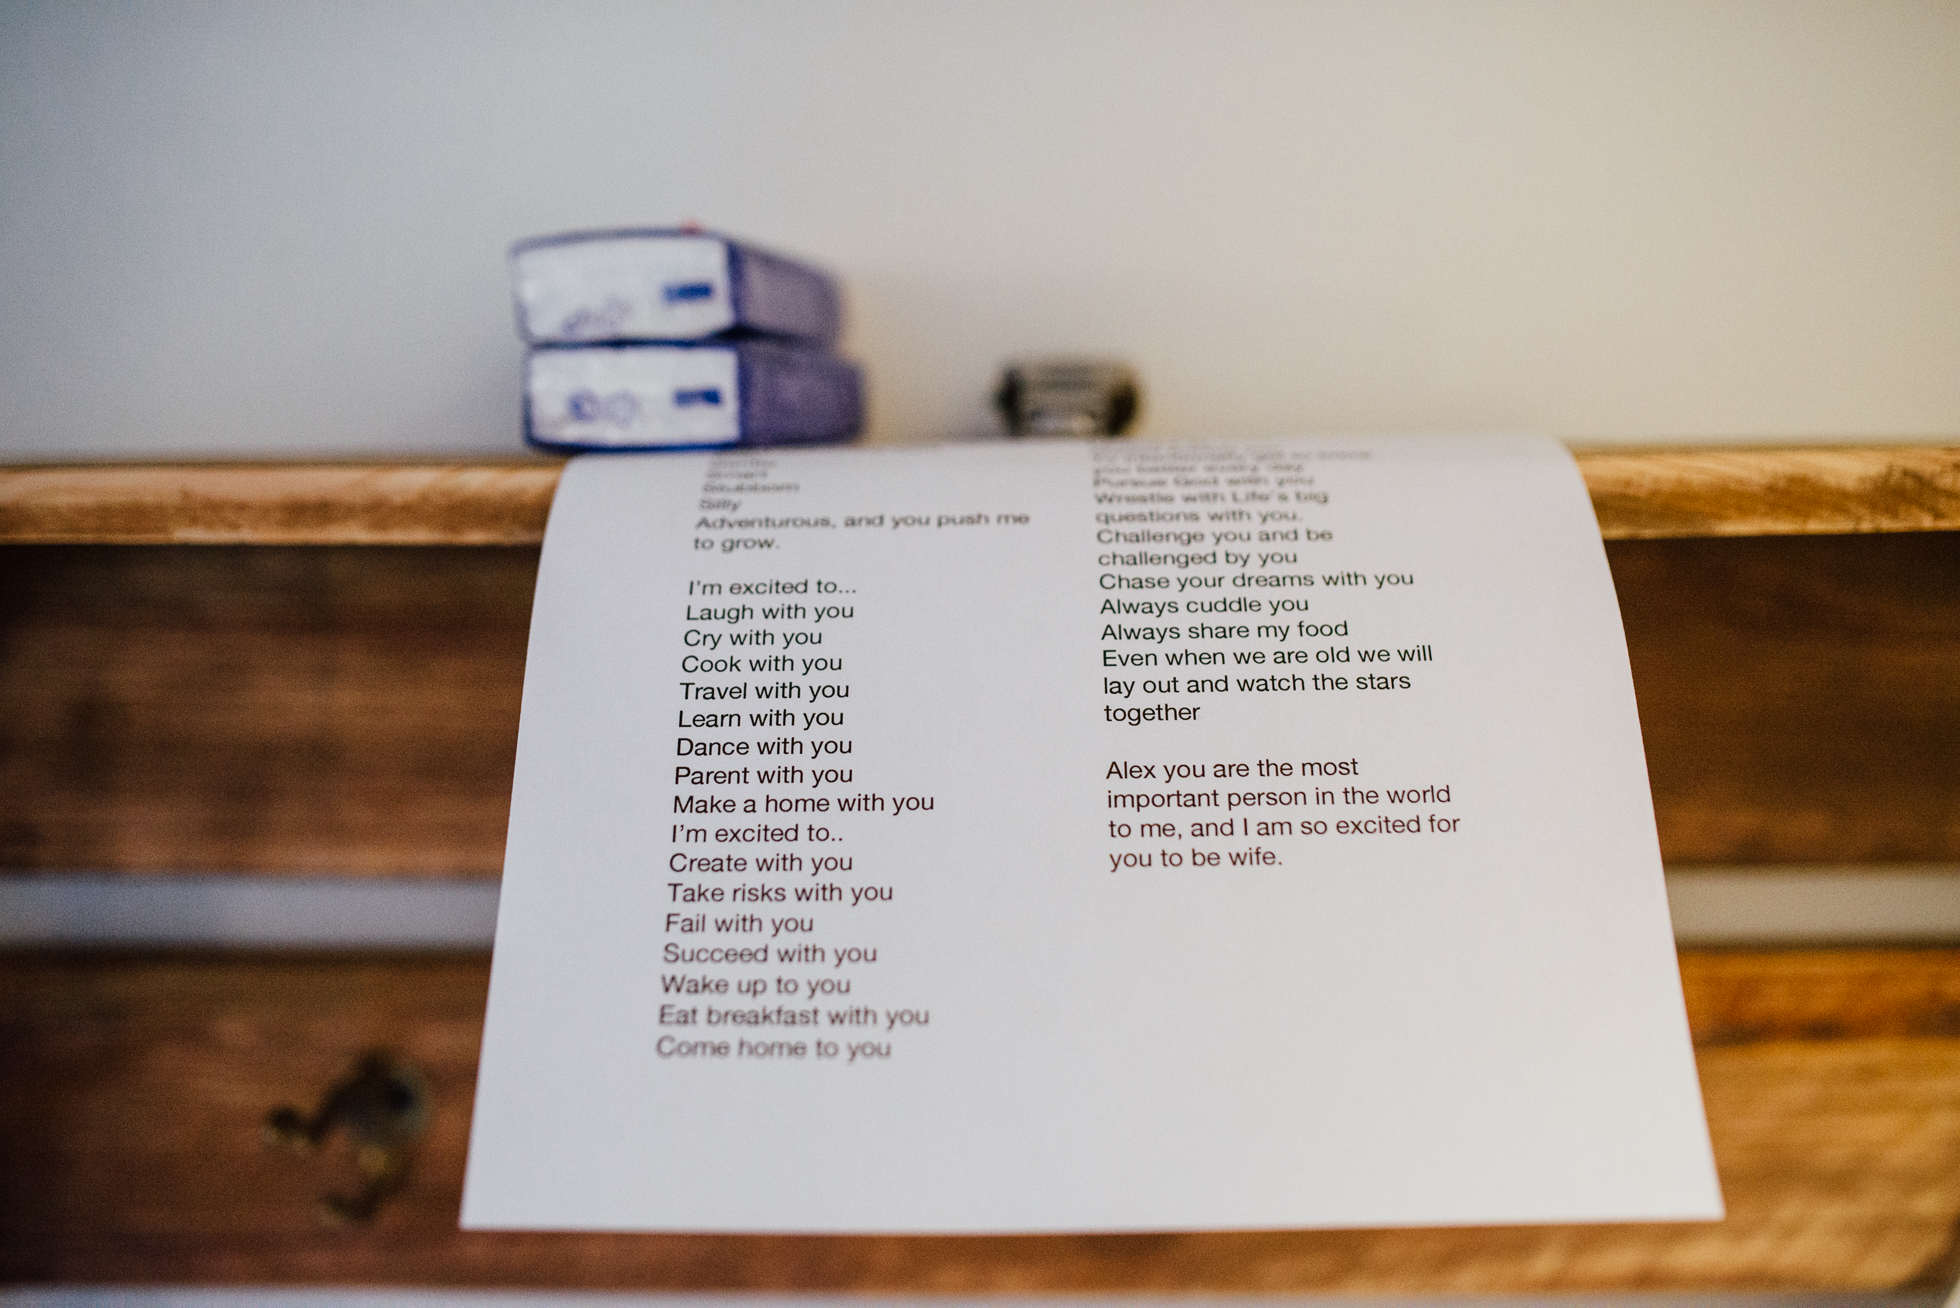 Stubborn
Silly
Adventurous, and you push me
to grow.
I'm excited to...
Laugh with you
Cry with you
Cook with you
Travel with you
Learn with you
Dance with you
Parent with you
Make a home with you
I'm excited to..
Create with you
Take risks with you
Fail with you
Succeed with you
Wake up to you
Eat breakfast with you
Come home to you
you better every day
Pursue God with you
Wrestle with Life's big
questions with you.
Challenge you and be
challenged by you
Chase your dreams with you
Always cuddle you
Always share my food
Even when we are old we will
lay out and watch the stars
together
Alex you are the most
important person in the world
to me, and I am so excited for
you to be wife.